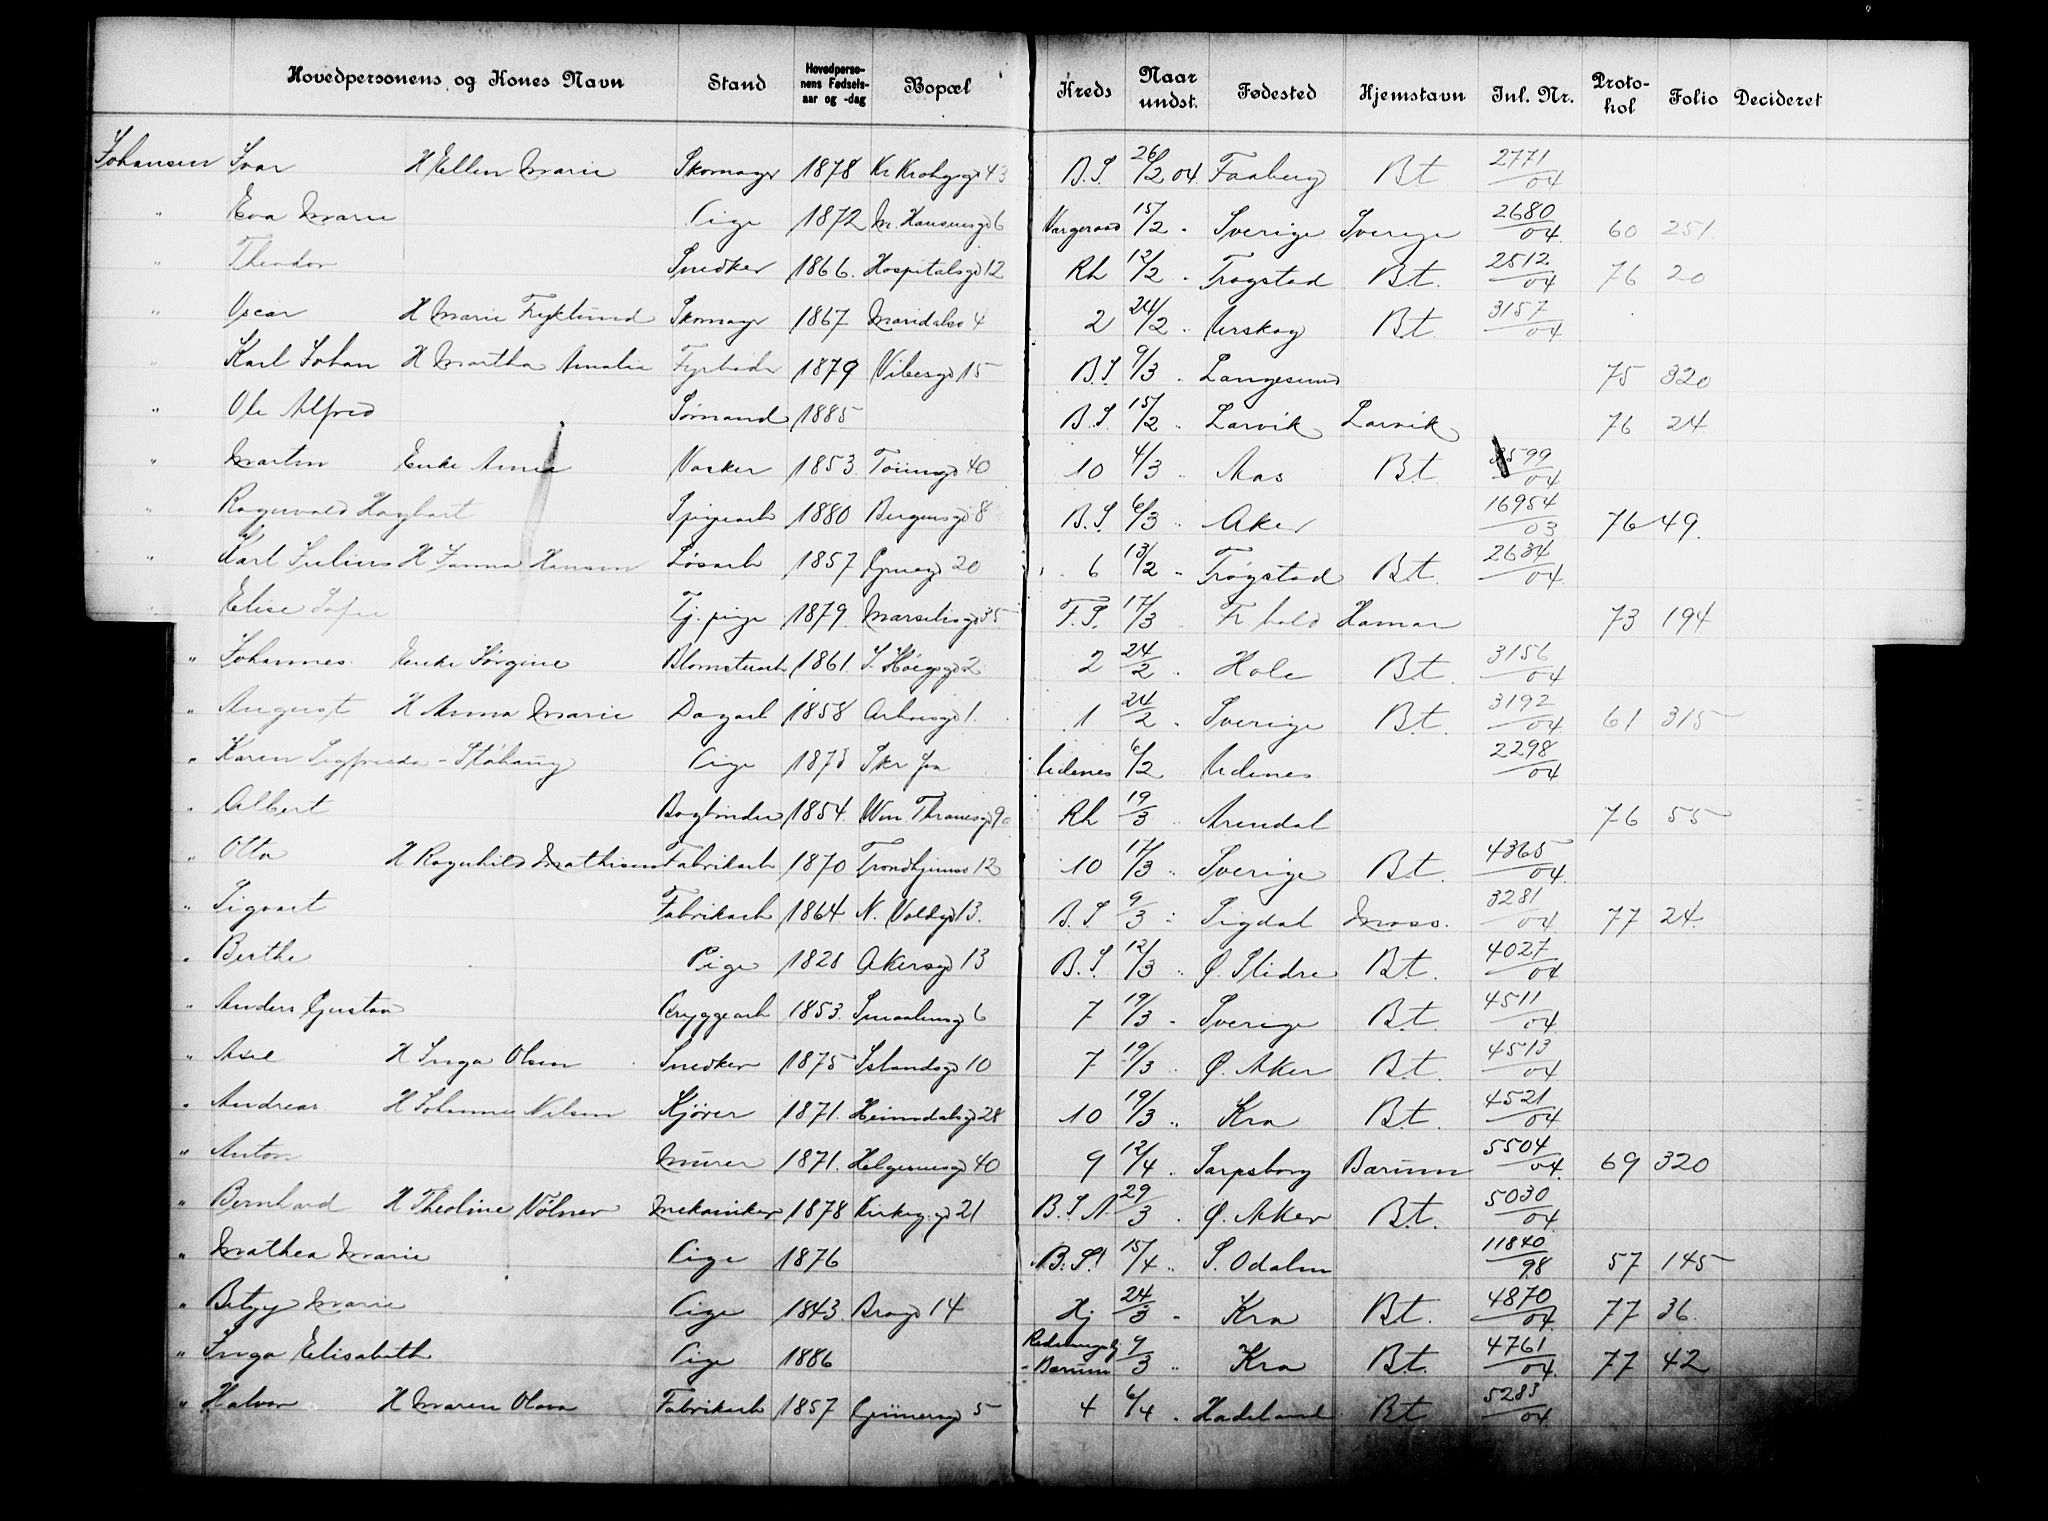 Hovedpersonens og Kones Navn Stand Hovedpersonens Fødselsaar og -dag Bopæl Kreds Naar undst. Fødested Hjemstavn Inl. Nr. Protokol Folio Decideret
Johansen Ivar H Ellen Marie Skomagr 1878 Kr Kroghsgd 43 B.S. 26/2 04 Faaberg Bt 2771/04
" Eva Marie Pige 1872 M. Hansensgd 6 15/2 " Sverige Sverige 2680/04 60 251
" Theodor Snedker 1866. Hospitalsgd 12 Rh 12/2 " Trøgstad Bt. 2512/04 76 20
" Oscar H Marie Fryklund Skomagr 1867 Maridalsv 4 2 24/2 " Urskog Bt. 3157/04
" Karl Johan H Martha Amalie Fyrbøder 1879 Vibesgd 15 B.S 9/3 " Langesund 75 320
" Ole Alfred Sømand 1885 B.S. 15/2 " Larvik Larvik 76 24
" Martin Enke Anna Vasker 1853. Töiengd 40 10 4/3 " Aas Bt. 3599/04
" Ragnvald Hagbart Spigerarb 1880 Bergensgd 8 B.S. 6/3 " Aker 16954/03 76 49.
" Karl Julius H Janna Hansen Løsarb 1857 Gruegd 20 6 13/2 " Trøgstad Bt. 2634/04
" Elise Sofie Tj. pige 1879. Marselisgd 35 F.S. 17/3 Fr. hald Hamar 73 194
" Johannes. Enke Jørgine Blomsterarb 1861. J. Høegsgd 2 2 24/2 " Hole Bt. 3156/04
" August H Anna Marie Dagarb 1858 Arbosgd 1. 1 24/2 " Sverige Bt. 3192/04 61 315
" Karen Sigfrieda - Skr fra Pige 1873 Udenes 6/2 " Udenes 2298/04
" Albert Bogbinder 1854. Wm. Thranesgd 9 Rh 19/3 " Arendal 76 55
" Otto H Ragnhild Mathisen Fabrikarb 1870 Trondhjemsv 12 10 17/3 " Sverige Bt. 4365/04
" Sigvart Fabrikarb 1864 N. Voldgd 13. B.S 9/3 " Sigdal Moss. 3281/04 77 24.
" Berthe Pige 1828 Akersgd 13 B.S. 12/3 " Ø. Slidre Bt. 4027/04
" Anders Gustav Bryggearb 1853. Smaalensgd 6 7 19/3 " Sverige Bt. 4511/04
" Axel H Inga Olsen Snedker 1875 Islandsgd 10 7 19/3 " Ø. Aker Bt. 4513/04
" Andreas H Johanne Nilsen Kjører 1871. Heimdalsgd 28 10 19/3 " Kra Bt. 4521/04
" Anton Murer 1871. Helgesensgd 40 9 12/4 " Sarpsborg Bærum 5504/04 69 320
" Bernhard H Theoline Völner Mekaniker 1878 Kirkeg.gd 21 B.S.N. 29/3 " Ø. Aker Bt. 5030/04
" Mathea Marie Pige 1876 B.S. 15/4 " S. Odalen 11840/98 57 145
" Betzy Marie Pige 1843 Brogd 14 Hj 24/3 " Kra Bt. 4870/04 77 36.
" Inga Elisabeth Pige 1886 Bærum 9/3 " Kra Bt. 4761/04 77 42
" Halvor H Maren Olava Fabrikarb 1857 Grünersgd 5 4 6/4 " Hadeland Bt 5283/04